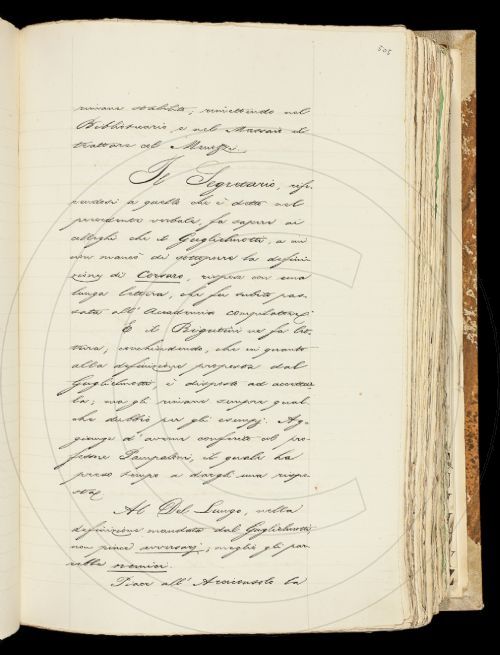 505
rimane stabilito; rimettendo nel
Bibliotecario, e nel Massaio il
trattare col
Il Segretario, rife-
rendosi a quello che è detto nel
precedente verbale, fa sapere ai
colleghi che il Guglielmotti, a cui
non mancò di sottoporre la defini-
zione di Corsaro, rispose con una
lunga lettera, che fu subito pas-
sata all'Accademia compilatrice.
E il Rigutini ne fa let-
tura; conchiudendo, che in quanto
alla definizione proposta dal
Guglielmotti, è disposto ad accettar-
la; ma gli rimane sempre qual-
che dubbio per gli esempj. Ag-
giunge d'averne conferito col pro-
fessore Pampaloni, il quale ha
preso tempo a dargli una rispo-
sta.
Al Del Lungo, nella
definizione mandata dal Guglielmotti,
non piace avversarj; meglio gli par-
rebbe nemici.
Piace all'Arciconsolo la